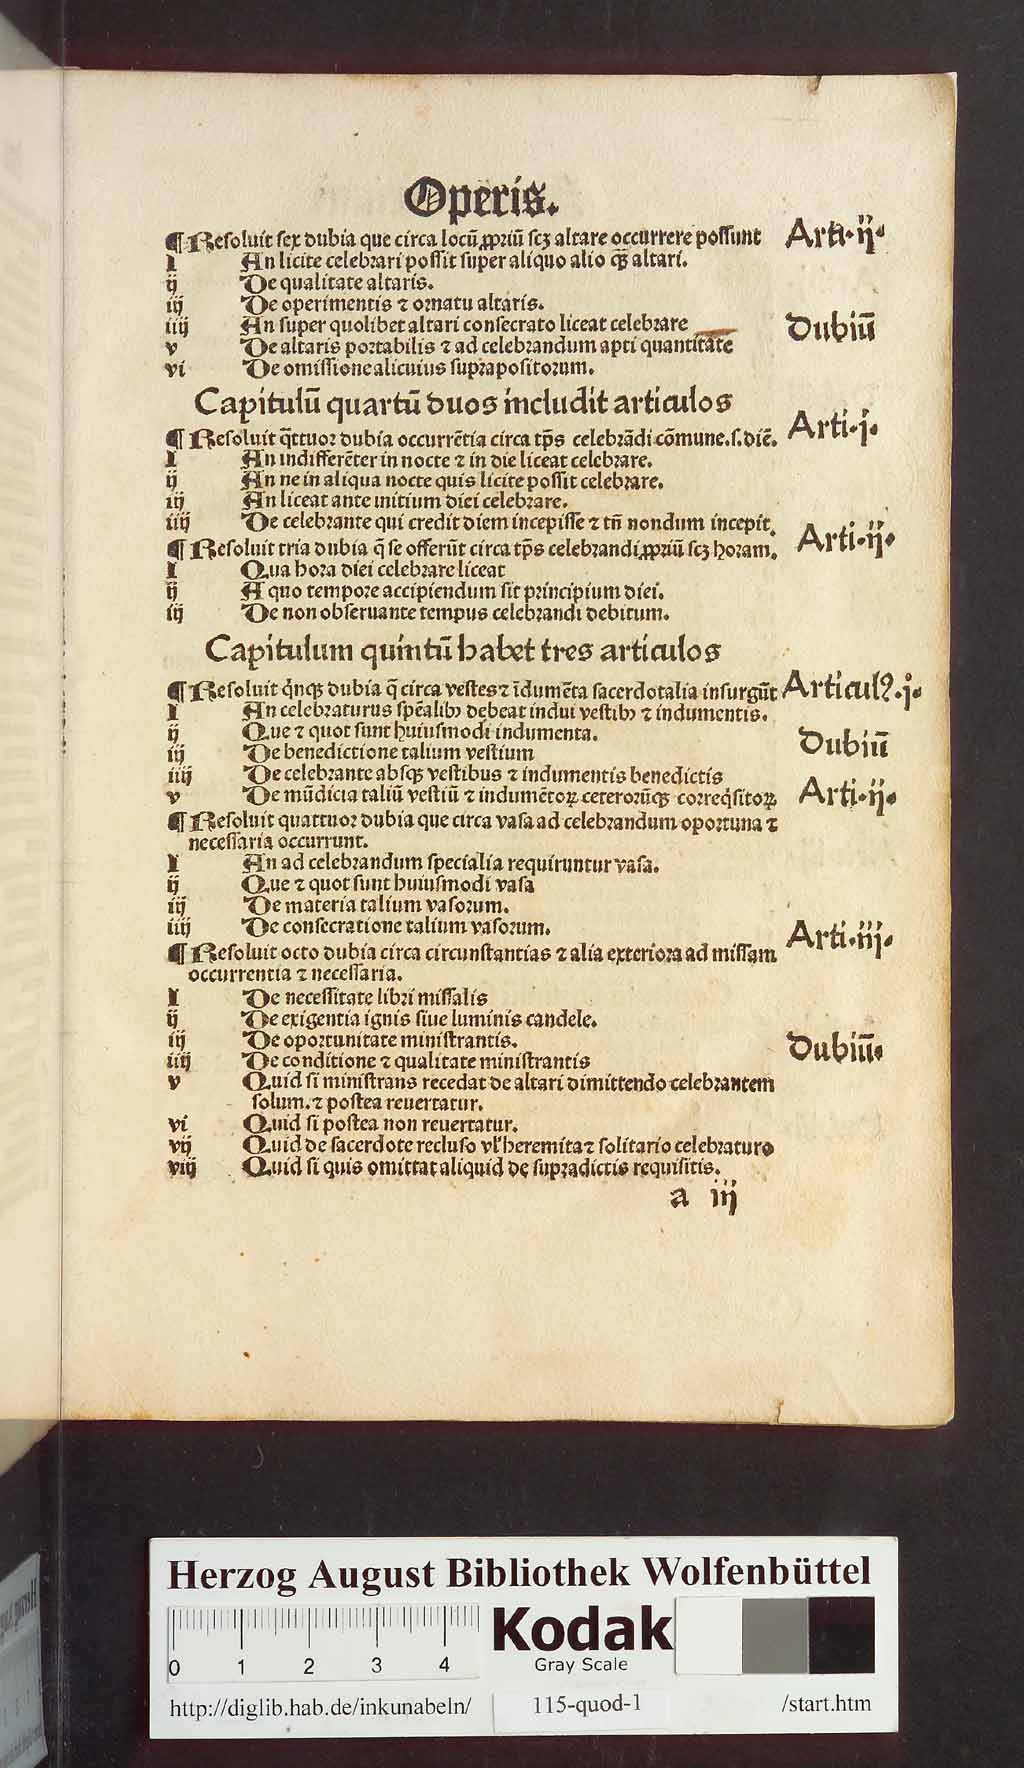 Operis.
¶ Resoluit sex dubia que circa locū ꝓpriū scꝫ altare occurrere possunt
Arti·ij·
I An licite celebrari possit super aliquo alio qꝫ altari.
ij De qualitate altaris.
iij De operimentis ⁊ ornatu altaris.
iiij An super quolibet altari consecrato liceat celebrare
Dubiū
v De altaris portabilis ⁊ ad celebrandum apti quantitate
vi De omissione alicuius suprapositorum.
Capitulū quartū duos includit articulos
¶ Resoluit q̄ttuor dubia occurrētia circa tp̄s celebrādi cōmune.s.diē.
Arti·j·
I An indifferēter in nocte ⁊ in die liceat celebrare.
ij An ne in aliqua nocte quis licite possit celebrare.
iij An liceat ante initium diei celebrare.
iiij De celebrante qui credit diem incepisse ⁊ tn̄ nondum incepit.
¶ Resoluit tria dubia q̄ se offerūt circa tp̄s celebrandi ꝓpriū scꝫ horam.
Arti·ij·
I Qua hora diei celebrare liceat
ij A quo tempore accipiendum sit principium diei.
iij De non obseruante tempus celebrandi debitum.
Capitulum quintū habet tres articulos
¶ Resoluit q̇nqꝫ dubia q̄ circa vestes ⁊ īdumēta sacerdotalia insurgūt
Articulꝰ·j·
I An celebraturus spēalibꝫ debeat indui vestibꝫ ⁊ indumentis.
ij Que ⁊ quot sunt huiusmodi indumenta.
Dubiū
iij De benedictione talium vestium
iiij De celebrante absqꝫ vestibus ⁊ indumentis benedictis
v De mūdicia taliū vestiū ⁊ indumētoꝝ ceterorūqꝫ correq̇sitoꝝ
Arti·ij·
¶ Resoluit quattuor dubia que circa vasa ad celebrandum oportuna ⁊
necessaria occurrunt.
I An ad celebrandum specialia requiruntur vasa.
ij Que ⁊ quot sunt huiusmodi vasa
iij De materia talium vasorum.
iiij De consecratione talium vasorum.
Arti·iij·
¶ Resoluit octo dubia circa circunstantias ⁊ alia exteriora ad missam
occurrentia ⁊ necessaria.
I De necessitate libri missalis
ij De exigentia ignis siue luminis candele.
iij De oportunitate ministrantis.
Dubiū·
iiij De conditione ⁊ qualitate ministrantis
v Quid si ministrans recedat de altari dimittendo celebrantem
solum.⁊ postea reuertatur.
vi Quid si postea non reuertatur.
vij Quid de sacerdote recluso vl' heremita ⁊ solitario celebraturo
viij Quid si quis omittat aliquid de supradictis requisitis.
a iij
Herzog August Bibliothek Wolfenbüttel
0 1 2 3 4
Kodak
Gray Scale
http://diglib.hab.de/inkunabeln/ 115-quod-1 /start.htm